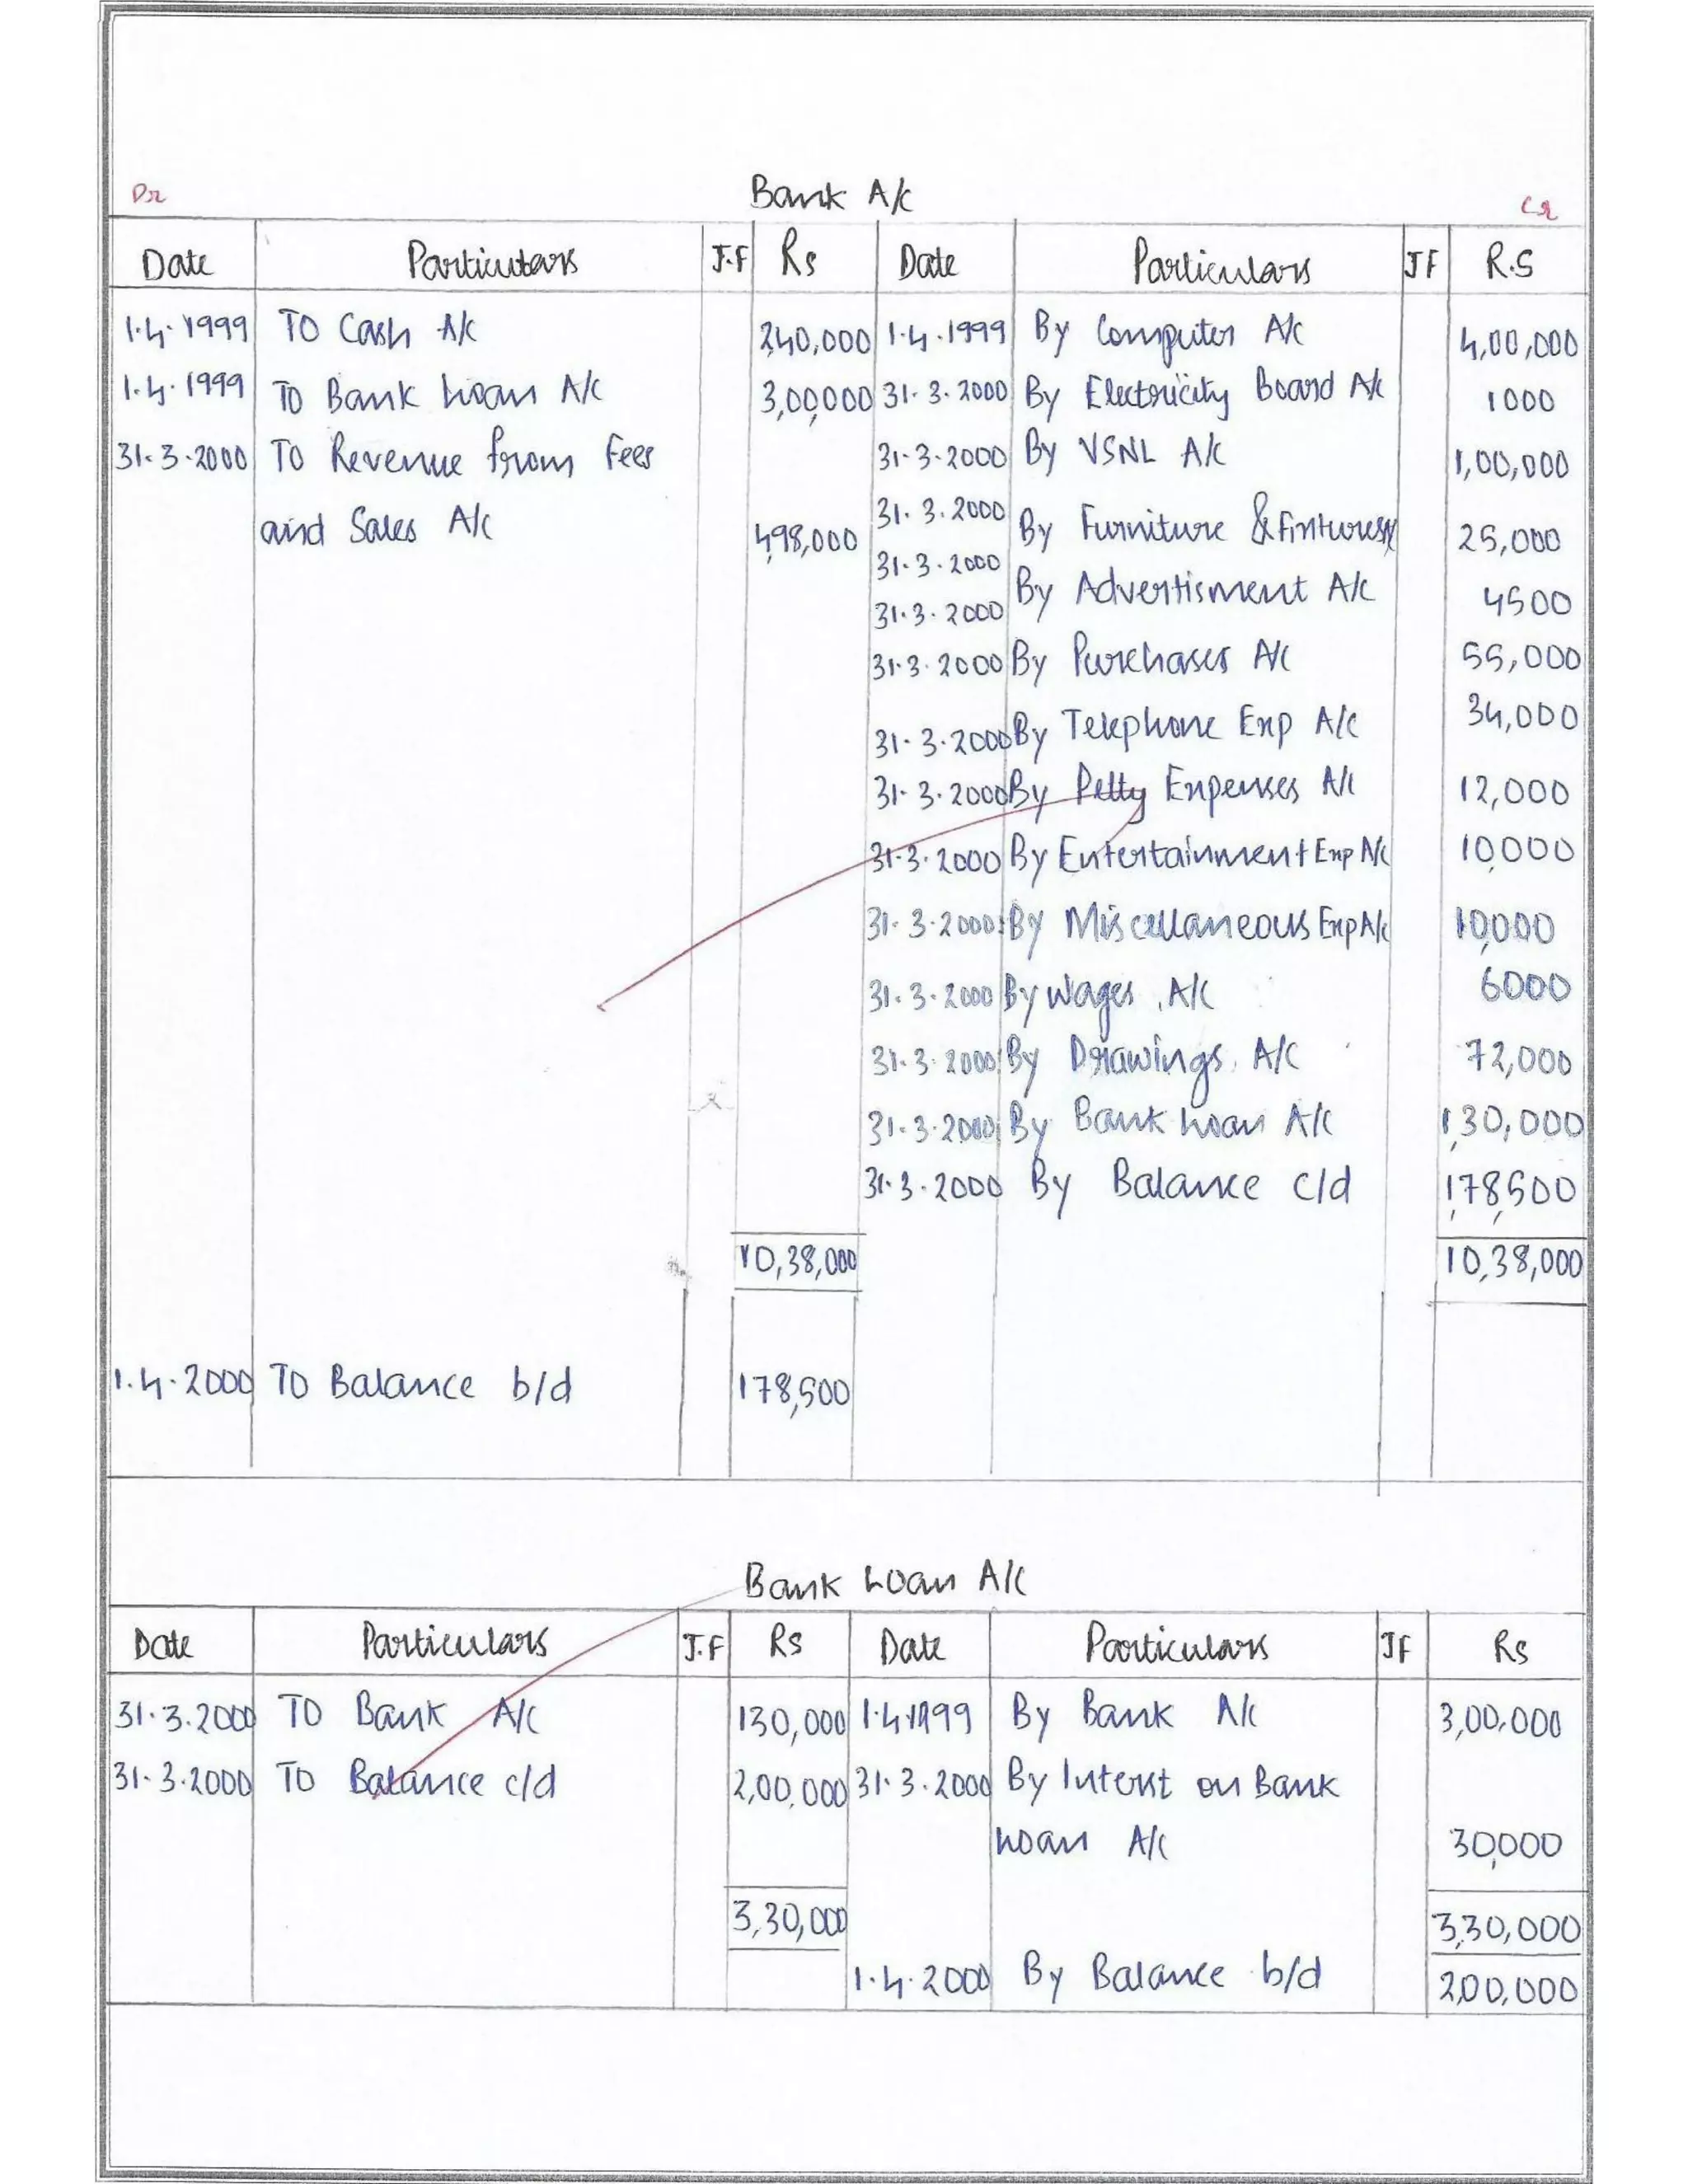 Dr Bank A/c Cr
Date Particulars J.F Rs Date Particulars JF R.S
1.4.1999 To Cash A/c 240,000 1.4.1999 By Computer A/c 4,00,000
1.4.1999 To Bank Loan A/c 3,00,000 31.3.2000 By Electricity Board A/c 1000
31.3.2000 To Revenue from Fees 31.3.2000 By VSNL A/c 1,00,000
and Sales A/c 498,000 31.3.2000 By Furniture & Fixtures 25,000
31.3.2000 By Advertisment A/c 4500
31.3.2000
31.3.2000 By Purchases A/c 55,000
31.3.2000 By Telephone Exp A/c 34,000
31.3.2000 By Petty Expenses A/c 12,000
31.3.2000 By Entertainment Exp A/c 10,000
31.3.2000 By Miscellaneous Exp A/c 10,000
31.3.2000 By Wages A/c 6000
31.3.2000 By Drawings A/c 72,000
31.3.2000 By Bank Loan A/c 1,30,000
31.3.2000 By Balance c/d 1,78,500
10,38,000 10,38,000
1.4.2000 To Balance b/d 178,500
Bank Loan A/c
Date Particulars J.F Rs Date Particulars JF Rs
31.3.2000 To Bank A/c 130,000 1.4.1999 By Bank A/c 3,00,000
31.3.2000 To Balance c/d 2,00,000 31.3.2000 By Interst on Bank
Loan A/c 30,000
3,30,000 3,30,000
1.4.2000 By Balance b/d 2,00,000